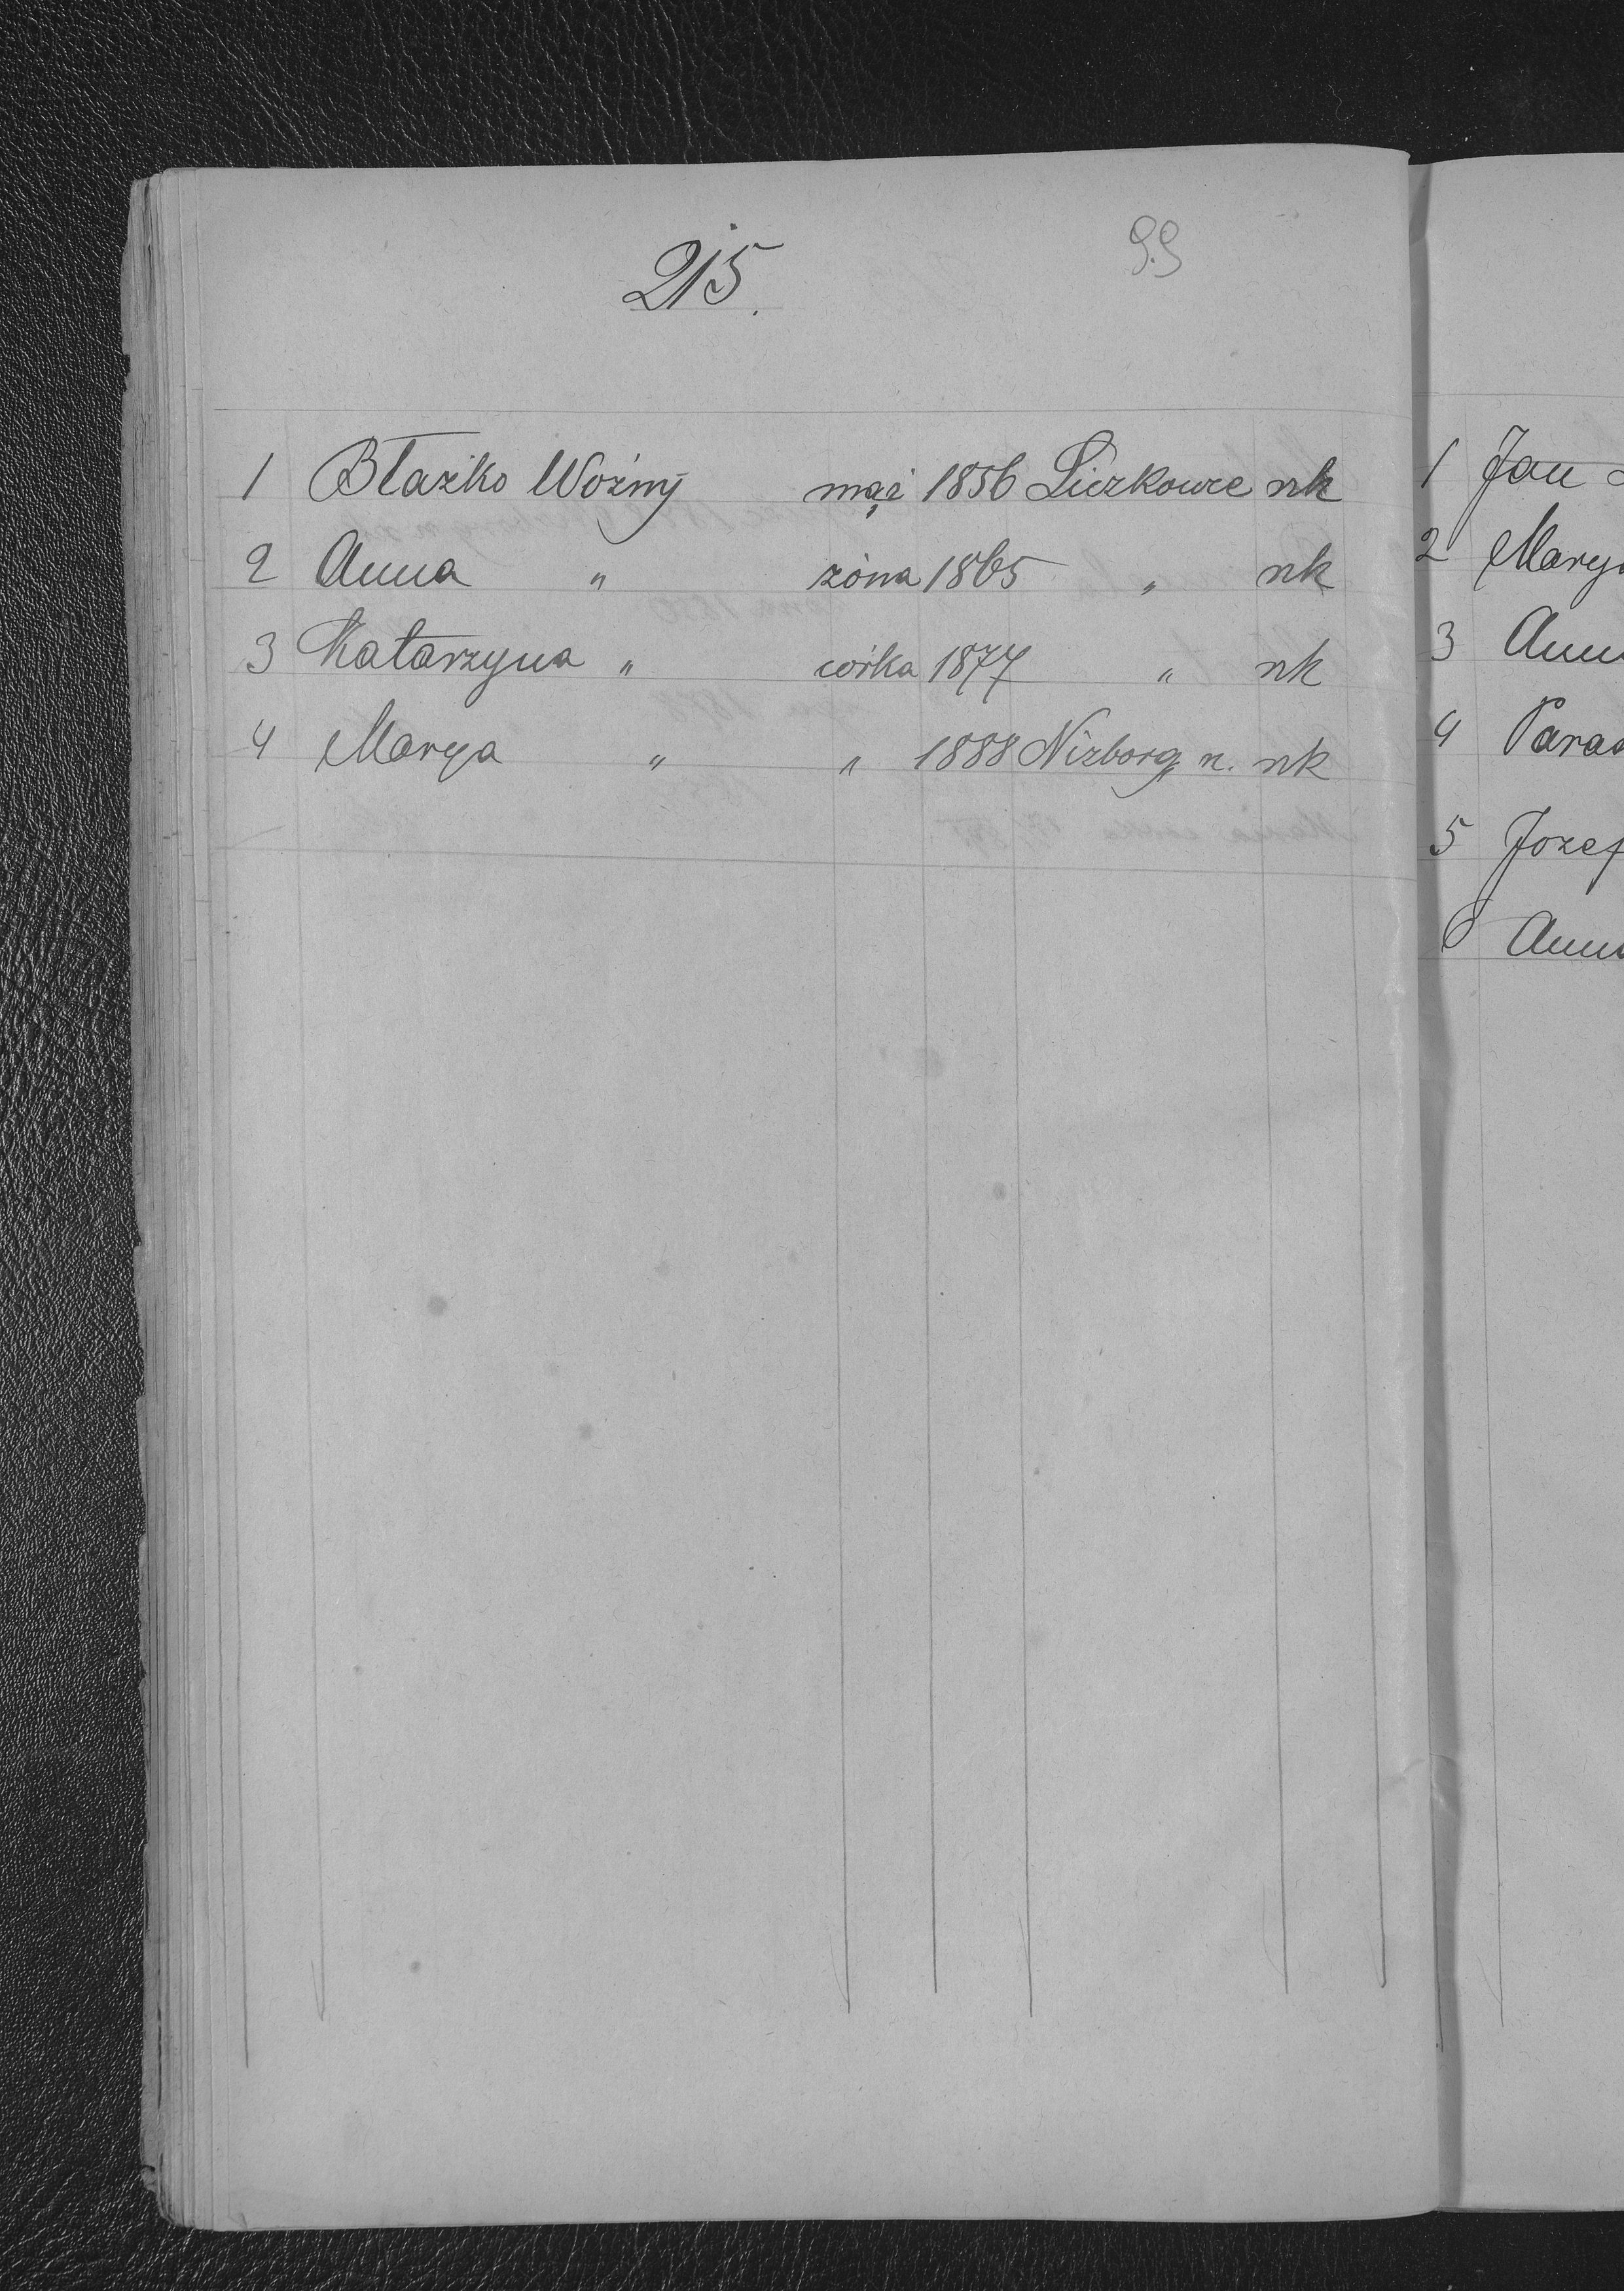 215.
99
1 Błażko Woźny mąż 1856 Liczkowce nk
2 Anna " żona 1865 " nk
3 Katarzyna " córka 1877 " nk
4 Marya " " 1888 Niżborg n. nk
1 Jan
2 Marya
3 Anna
4 Paras
5 Jozef
6 Anna